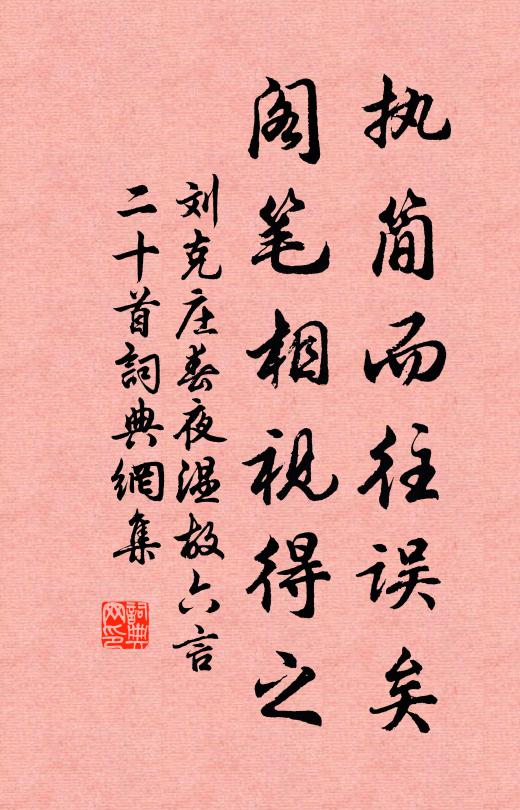 执简而往误矣
阁笔相视得之
刘克庄春夜温故六言
二十首詞典網集
詞典网印